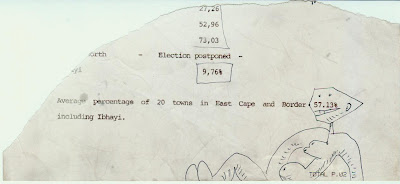 27,26
52,96
73,03
orth - Election postponed -
yi 9,76%
Average percentage of 20 towns in East Cape and Border 57,13%
including Ibhayi.
TOTAL P.02